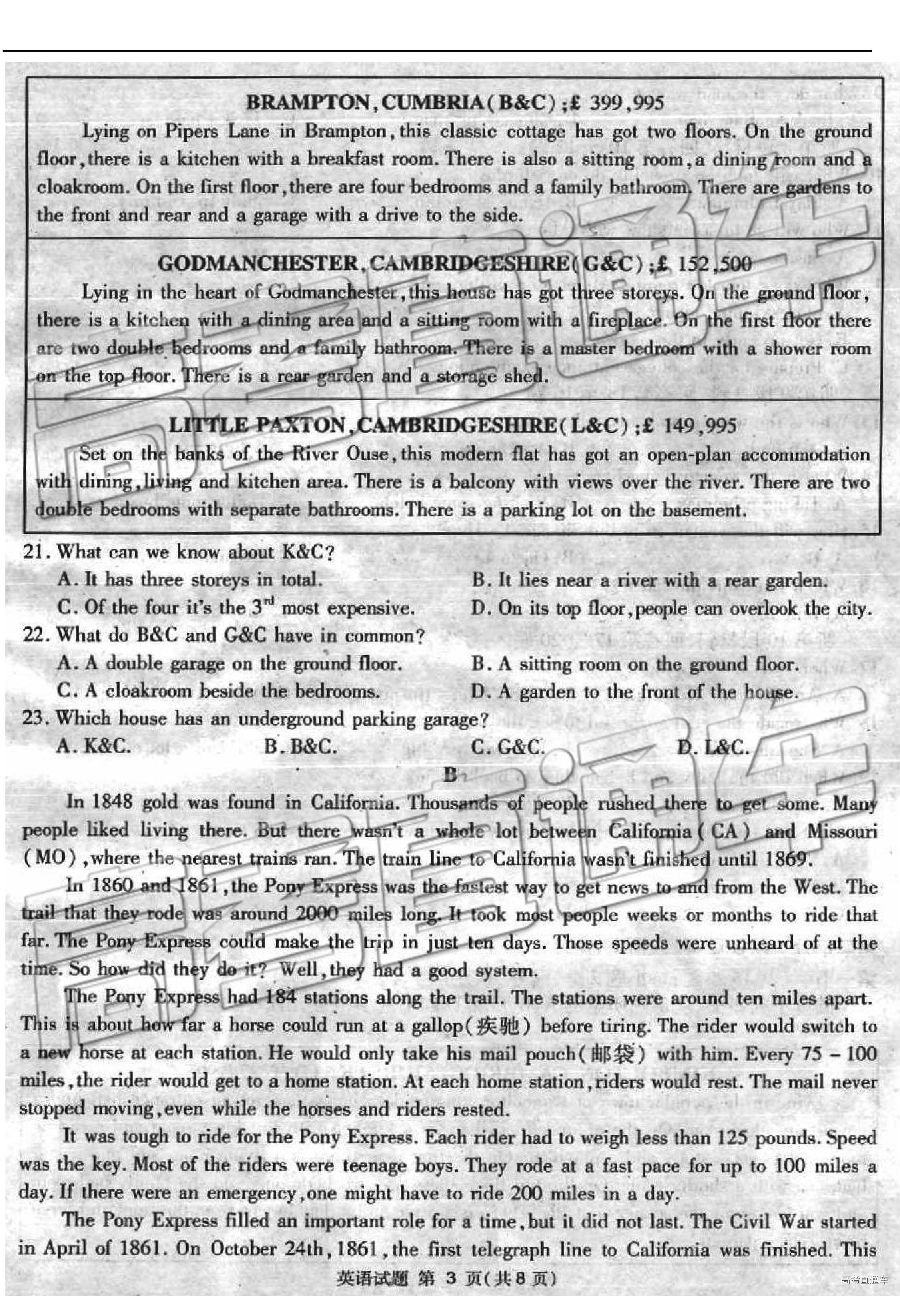 BRAMPTON,CUMBRIA(B&C);£ 399,995
Lying on Pipers Lane in Brampton,this classic cottage has got two floors. On the ground
floor,there is a kitchen with a breakfast room. There is also a sitting room,a dining room and a
cloakroom. On the first floor,there are four bedrooms and a family bathroom. There are gardens to
the front and rear and a garage with a drive to the side.
GODMANCHESTER,CAMBRIDGESHIRE(G&C);£ 152,500
Lying in the heart of Godmanchester,this house has got three storeys. On the ground floor,
there is a kitchen with a dining area and a sitting room with a fireplace. On the first floor there
are two double bedrooms and a family bathroom. There is a master bedroom with a shower room
on the top floor. There is a rear garden and a storage shed.
LITTLE PAXTON,CAMBRIDGESHIRE(L&C);£ 149,995
Set on the banks of the River Ouse,this modern flat has got an open-plan accommodation
with dining,living and kitchen area. There is a balcony with views over the river. There are two
double bedrooms with separate bathrooms. There is a parking lot on the basement.
21. What can we know about K&C?
A. It has three storeys in total. B. It lies near a river with a rear garden.
C. Of the four it's the 3rd most expensive. D. On its top floor,people can overlook the city.
22. What do B&C and G&C have in common?
A. A double garage on the ground floor. B. A sitting room on the ground floor.
C. A cloakroom beside the bedrooms. D. A garden to the front of the house.
23. Which house has an underground parking garage?
A. K&C. B. B&C. C. G&C. D. L&C.
B
In 1848 gold was found in California. Thousands of people rushed there to get some. Many
people liked living there. But there wasn't a whole lot between California(CA) and Missouri
(MO),where the nearest trains ran. The train line to California wasn't finished until 1869.
In 1860 and 1861,the Pony Express was the fastest way to get news to and from the West. The
trail that they rode was around 2000 miles long. It took most people weeks or months to ride that
far. The Pony Express could make the trip in just ten days. Those speeds were unheard of at the
time. So how did they do it? Well,they had a good system.
The Pony Express had 184 stations along the trail. The stations were around ten miles apart.
This is about how far a horse could run at a gallop(疾驰) before tiring. The rider would switch to
a new horse at each station. He would only take his mail pouch(邮袋) with him. Every 75 – 100
miles,the rider would get to a home station. At each home station,riders would rest. The mail never
stopped moving,even while the horses and riders rested.
It was tough to ride for the Pony Express. Each rider had to weigh less than 125 pounds. Speed
was the key. Most of the riders were teenage boys. They rode at a fast pace for up to 100 miles a
day. If there were an emergency,one might have to ride 200 miles in a day.
The Pony Express filled an important role for a time,but it did not last. The Civil War started
in April of 1861. On October 24th,1861,the first telegraph line to California was finished. This
英语试题 第 3 页(共8页)
高考直通车
高考直通车
高考直通车